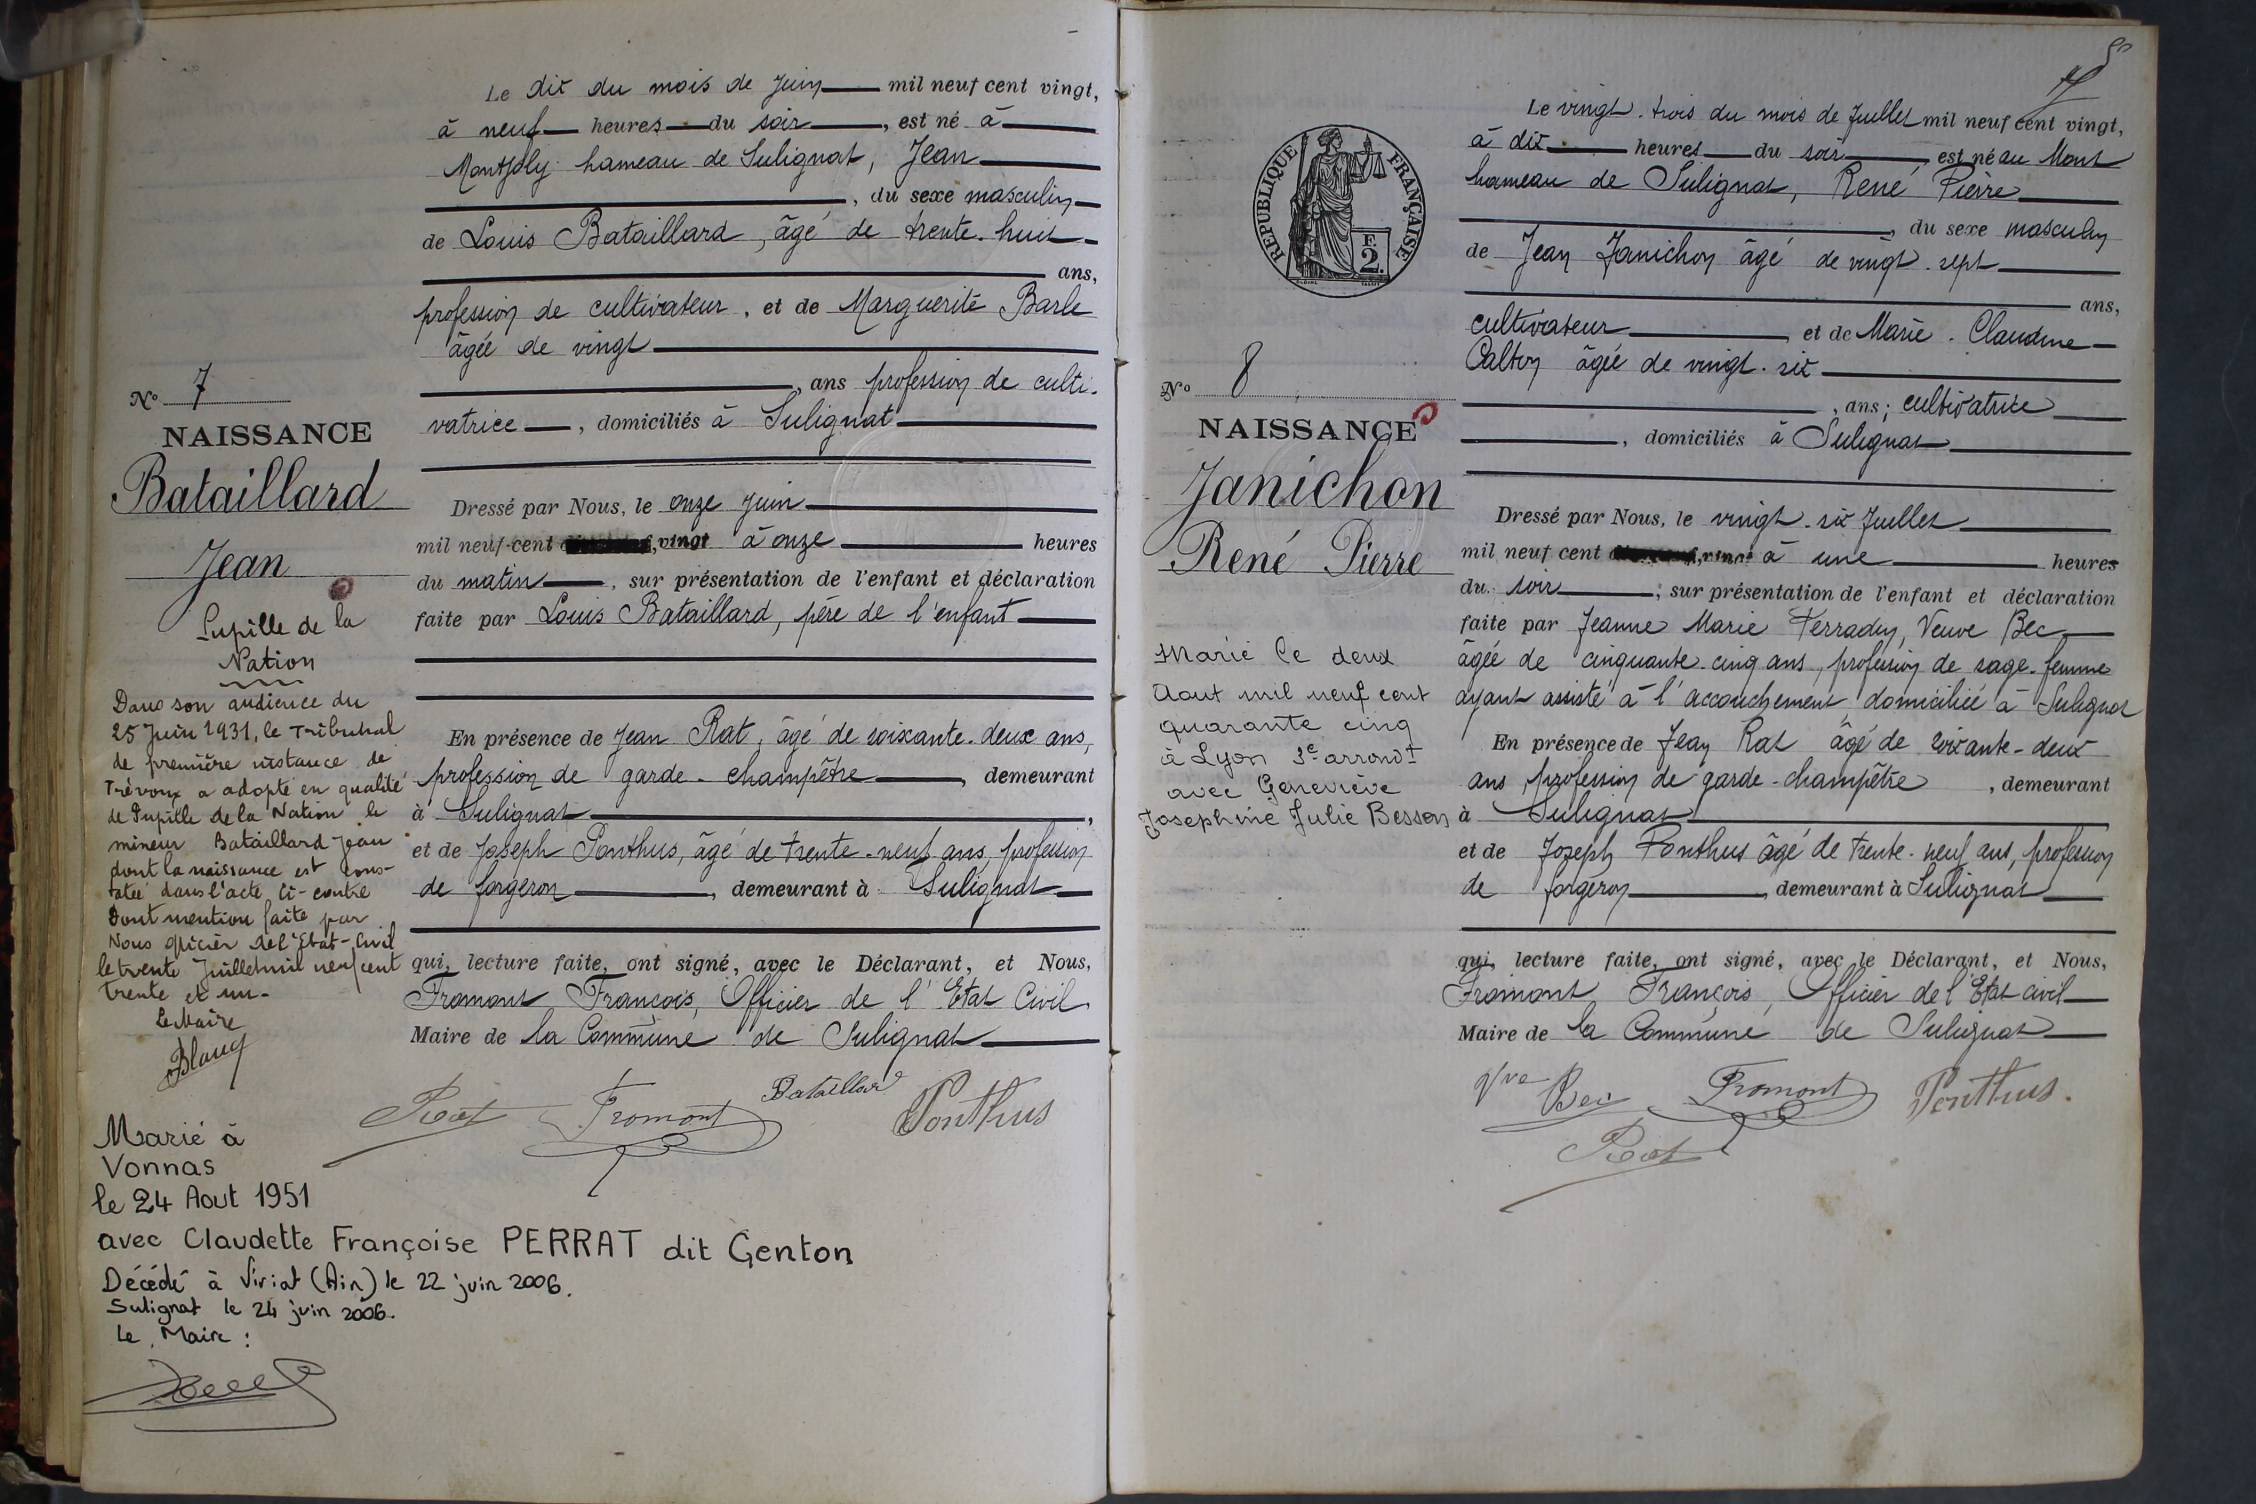 Le dix du mois de Juin mil neuf cent vingt,
à neuf heures du soir, est né à
Montjoly hameau de Sulignat, Jean
, du sexe masculin
de Louis Bataillard, âgé de trente-huit
ans,
profession de cultivateur, et de Marguerite Barle
âgée de vingt
, ans profession de culti-
vatrice, domiciliés à Sulignat
Dressé par Nous, le onze Juin
mil neuf-cent vingt à onze heures
du matin, sur présentation de l'enfant et déclaration
faite par Louis Bataillard, père de l'enfant
En présence de Jean Rat, âgé de soixante-deux ans,
profession de garde-champêtre, demeurant
à Sulignat,
et de Joseph Ponthus, âgé de trente-neuf ans, profession
de forgeron, demeurant à Sulignat
qui, lecture faite, ont signé, avec le Déclarant, et Nous,
Fromont François, Officier de l'Etat Civil
Maire de la Commune de Sulignat
Rat Fromont Bataillard Ponthus
No 7
NAISSANCE
Bataillard
Jean
Pupille de la
Nation
Dans son audience du
25 Juin 1931, le Tribunal
de première instance de
Trévoux a adopté en qualité
de Pupille de la Nation le
mineur Bataillard Jean
dont la naissance est cons-
tatée dans l'acte ci-contre
Dont mention faite par
Nous officier de l'Etat-Civil
le trente Juillet mil neuf cent
trente et un-
Le Maire
Marié à
Vonnas
le 24 Aout 1951
avec Claudette Françoise PERRAT dit Genton
Décédé à Viriat (Ain) le 22 juin 2006.
Sulignat le 24 juin 2006.
Le Maire :
RÉPUBLIQUE FRANÇAISE
F.
2.
No 8
NAISSANCE
Janichon
René Pierre
Marié le deux
Aout mil neuf cent
quarante cinq
à Lyon 3e arrondt
avec Geneviève
Josephine Julie Besson
Le vingt-trois du mois de Juillet mil neuf cent vingt,
à dix heures du soir, est né au Mont
hameau de Sulignat, René Pierre
, du sexe masculin
de Jean Janichon âgé de vingt-sept
ans,
cultivateur et de Marie-Claudine
Calton âgée de vingt-six
, ans; cultivatrice
, domiciliés à Sulignat
Dressé par Nous, le vingt-six Juillet
mil neuf cent vingt à une heures
du soir; sur présentation de l'enfant et déclaration
faite par Jeanne Marie Ferradin, Veuve Bec,
âgée de cinquante-cinq ans, profession de sage-femme
ayant assisté à l'accouchement domiciliée à Sulignat
En présence de Jean Rat âgé de soixante-deux
ans, profession de garde-champêtre, demeurant
à Sulignat
et de Joseph Ponthus âgé de trente-neuf ans, profession
de forgeron, demeurant à Sulignat
qui, lecture faite, ont signé, avec le Déclarant, et Nous,
Fromont François, Officier de l'Etat civil
Maire de la Commune de Sulignat
Bec Fromont Ponthus.
Rat